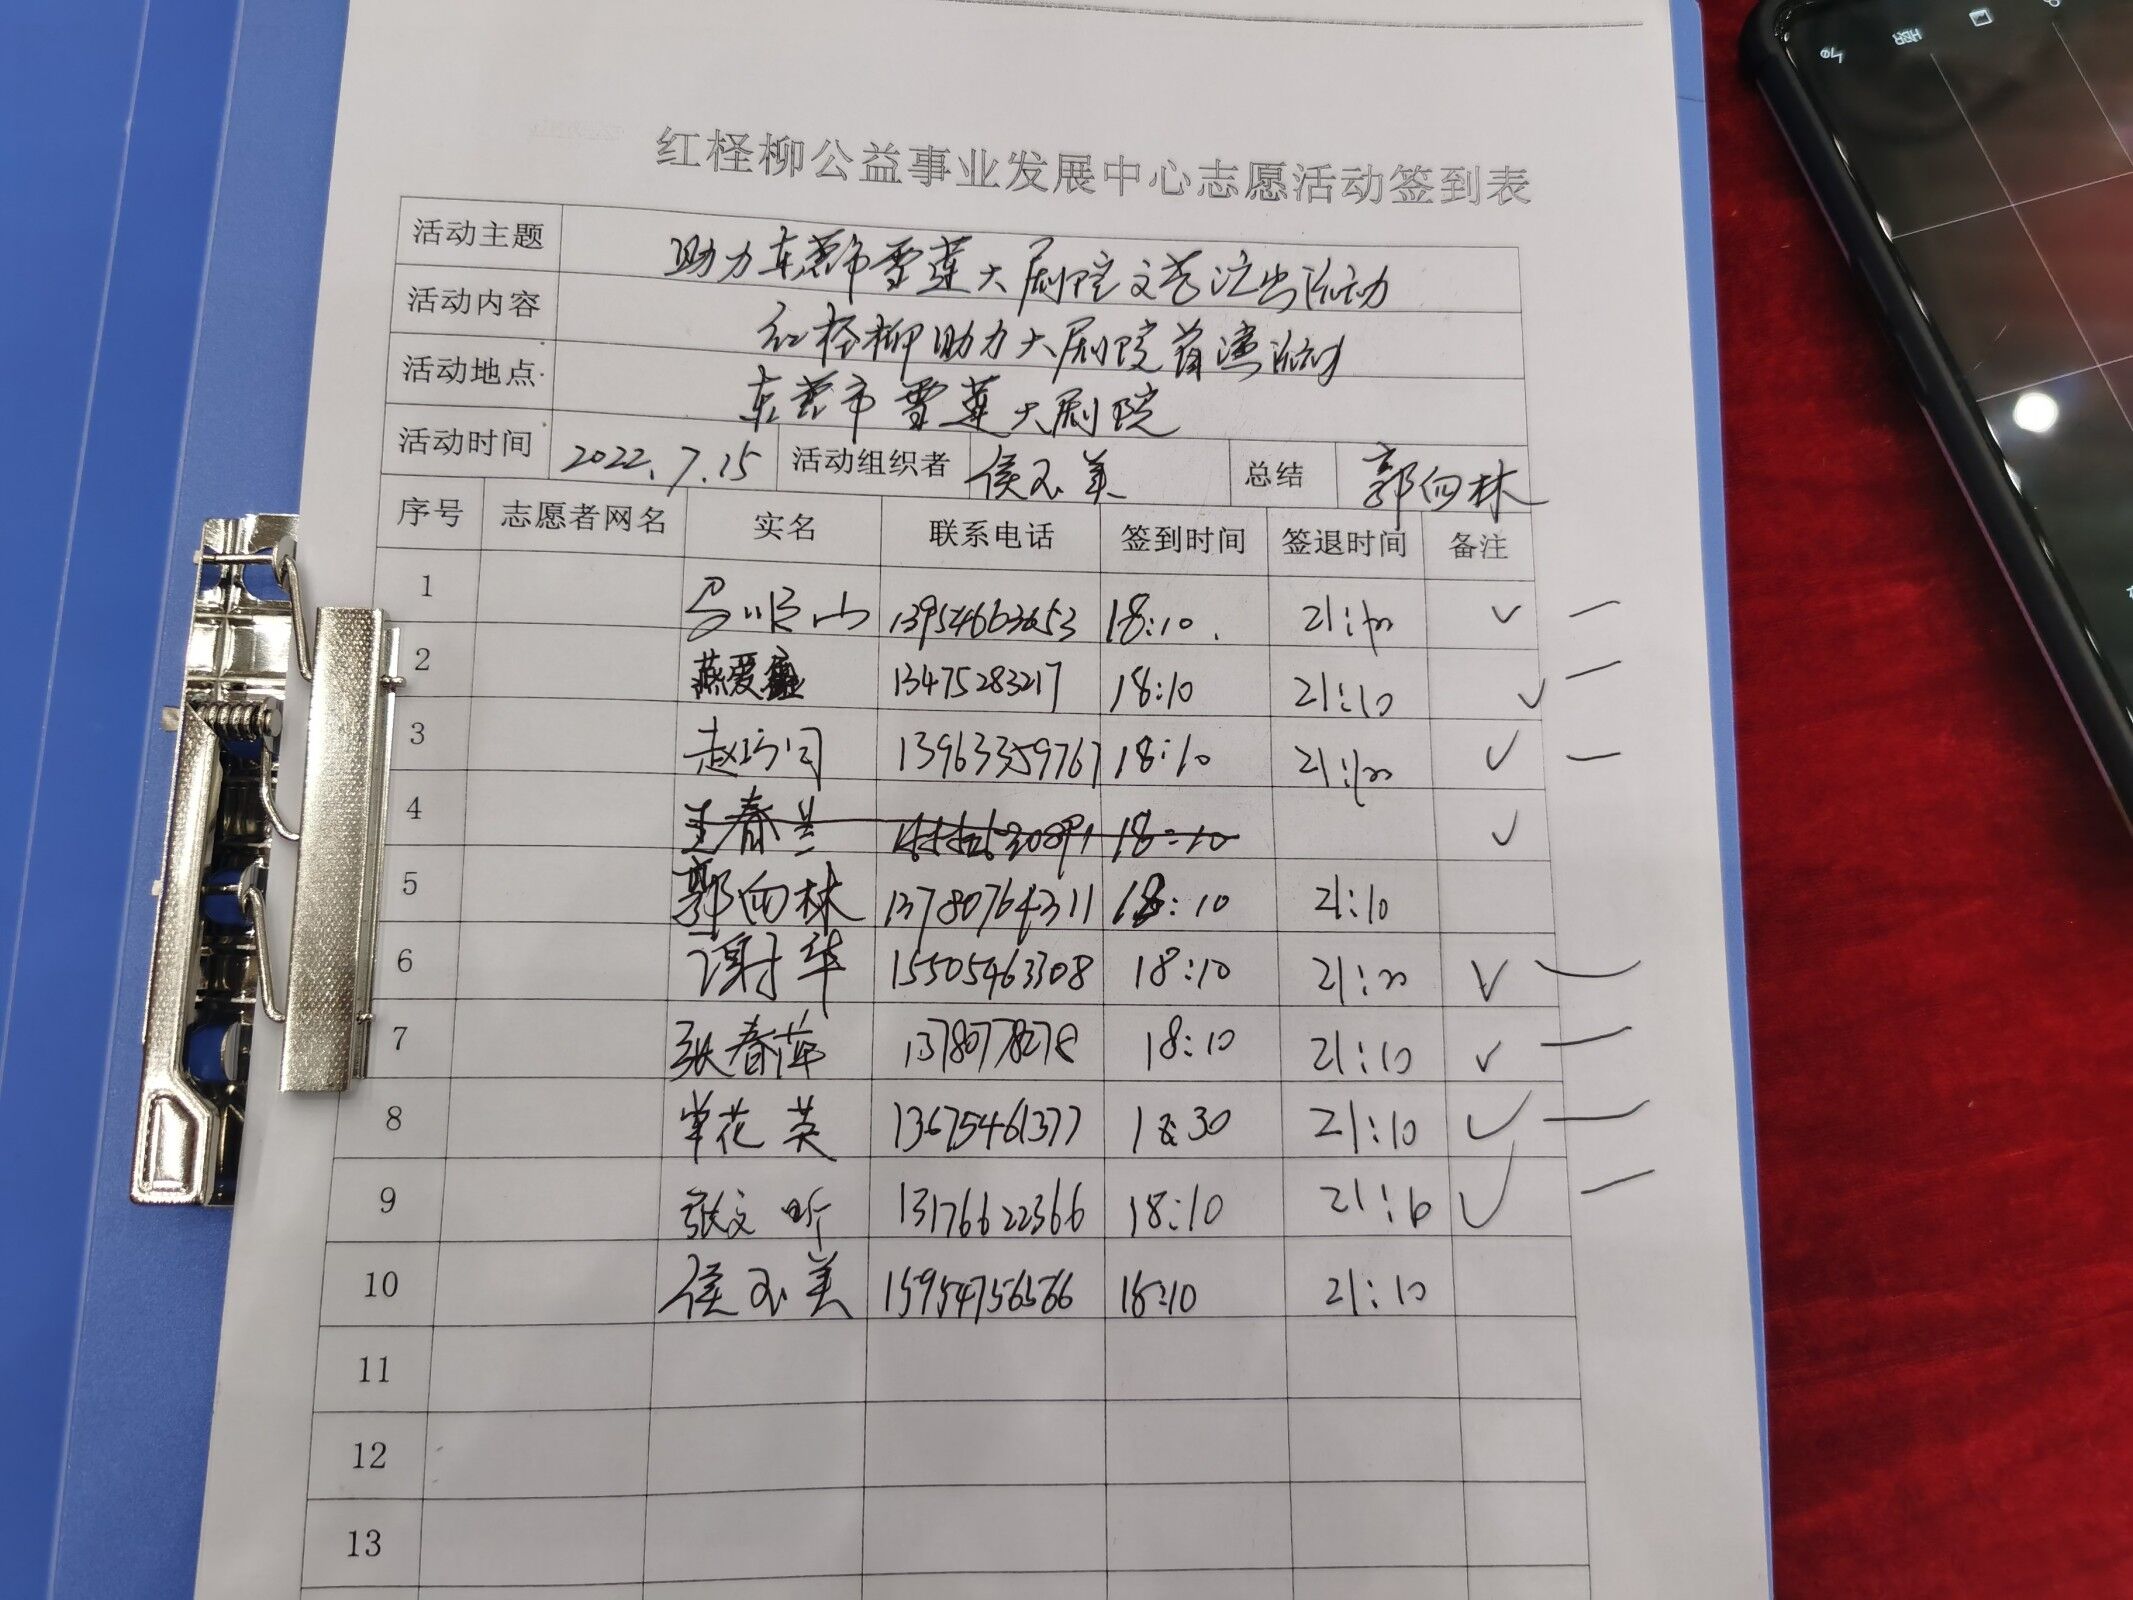 红柽柳公益事业发展中心志愿活动签到表
活动主题 助力东营市雪莲大剧院文艺演出活动
活动内容 红柽柳助力大剧院首演活动
活动地点 东营市雪莲大剧院
活动时间 2022.7.15 活动组织者 侯玉美 总结 郭向林
序号 志愿者网名 实名 联系电话 签到时间 签退时间 备注
1 13954663653 18:10 21:10 ✓
2 燕爱 13475283217 18:10 21:10 ✓
3 赵 13963359767 18:10 21:10 ✓
4 王春兰 18:10 ✓
5 郭向林 13780764311 18:10 21:10
6 谢华 15505463308 18:10 21:10 ✓
7 张春萍 13780778278 18:10 21:10 ✓
8 单花英 13675461377 18:30 21:10 ✓
9 张文昕 13176622366 18:10 21:10 ✓
10 侯玉美 15954756566 18:10 21:10
11
12
13
HDR